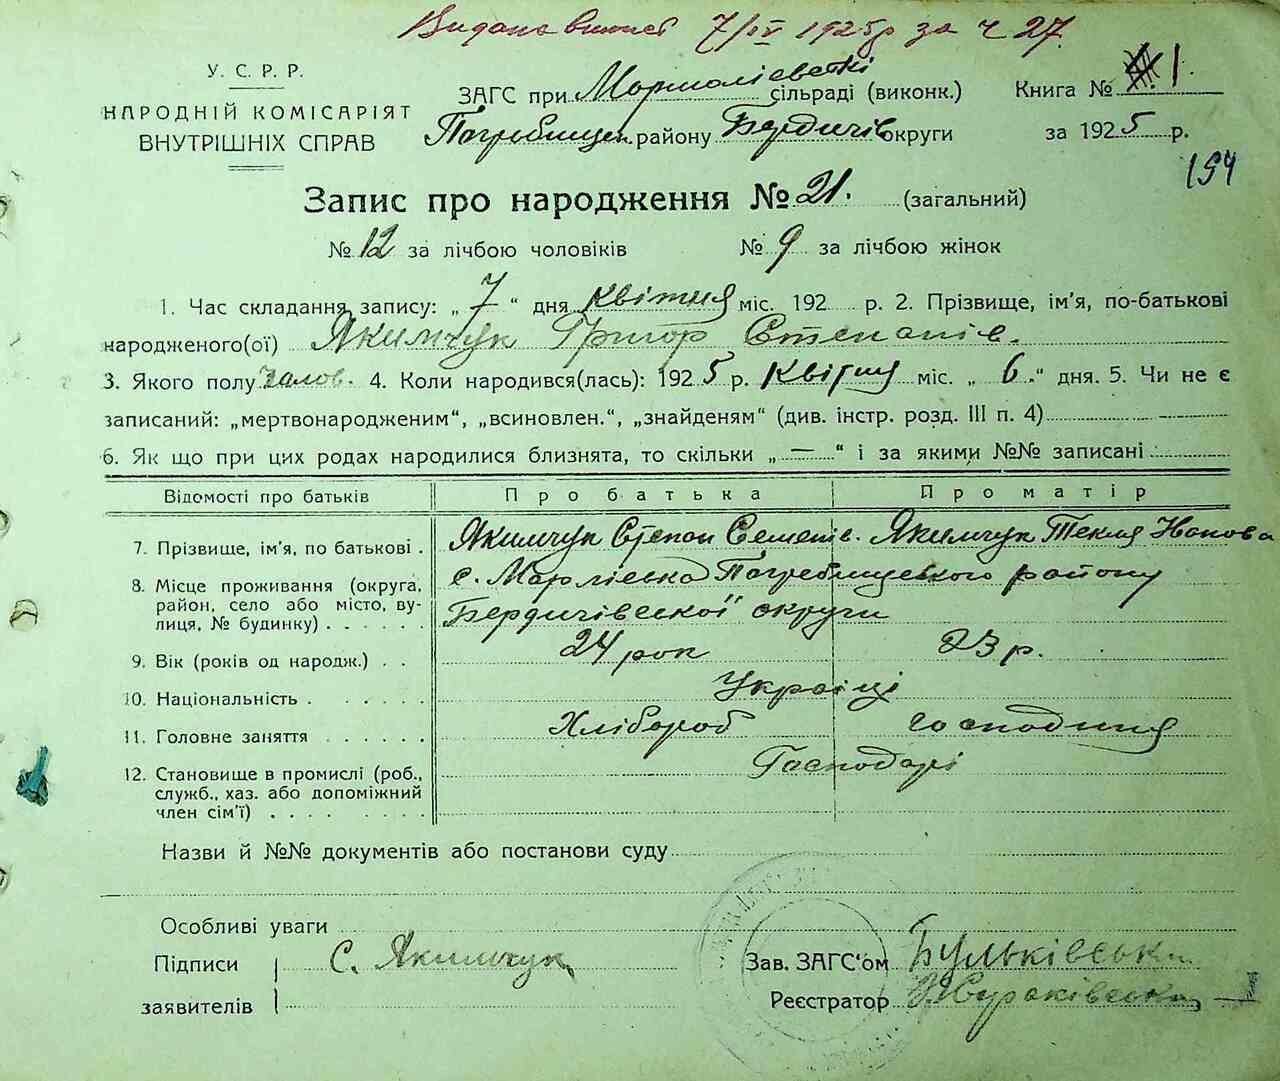 Видана виписка 7/IV 1925р за ч 27
У. С. Р. Р.
НАРОДНІЙ КОМІСАРІЯТ
ВНУТРІШНІХ СПРАВ
ЗАГС при сільраді (виконк.) Книга № 1.
Погребищен. району Бердичів округи за 1925 р.
154
Запис про народження № 21. (загальний)
№ 12 за лічбою чоловіків № 9 за лічбою жінок
1. Час складання запису: „ 7 “ дня Квітня міс. 192 р. 2. Прізвище, ім'я, по-батькові
народженого(ої) Якимчук Григор Степанів.
3. Якого полу чолов. 4. Коли народився(лась): 1925 р. Квітня міс. „ 6. “ дня. 5. Чи не є
записаний: „мертвонародженим“, „всиновлен.“, „знайденям“ (див. інстр. розд. III п. 4) —
6. Як що при цих родах народилися близнята, то скільки „ — “ і за якими №№ записані
Відомості про батьків Про батька Про матір
7. Прізвище, ім'я, по батькові . Якимчук Степан Семенів. Якимчук Текля Іванова
8. Місце проживання (округа, район, село або місто, вулиця, № будинку) с. Погребищенського району
Бердичівської округи
9. Вік (років од народж.) . . 24 рок 23 р.
10. Національність Українці
11. Головне заняття Хлібороб господиня
12. Становище в промислі (роб., служб., хаз. або допоміжний член сім'ї) Господарі
Назви й №№ документів або постанови суду
Особливі уваги
Підписи С. Якимчук Зав. ЗАГС'ом
заявителів Реєстратор